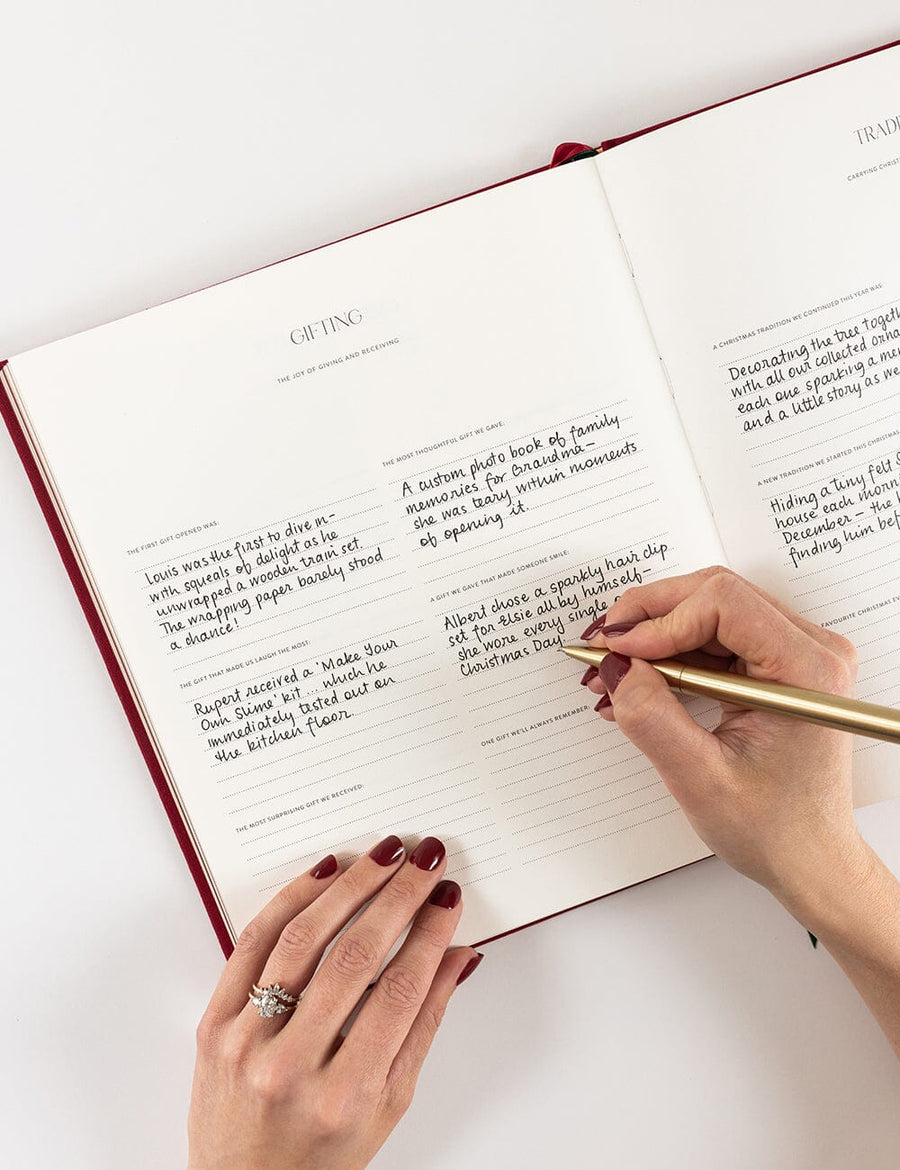 GIFTING
THE JOY OF GIVING AND RECEIVING
THE FIRST GIFT OPENED WAS:
Louis was the first to dive in–
with squeals of delight as he
unwrapped a wooden train set.
The wrapping paper barely stood
a chance!
THE GIFT THAT MADE US LAUGH THE MOST:
Rupert received a 'Make Your
Own Slime' kit ... which he
immediately tested out on
the kitchen floor.
THE MOST SURPRISING GIFT WE RECEIVED:
THE MOST THOUGHTFUL GIFT WE GAVE:
A custom photo book of family
memories for Grandma–
she was teary within moments
of opening it.
A GIFT WE GAVE THAT MADE SOMEONE SMILE:
Albert chose a sparkly hair clip
set for Elsie all by himself–
she wore every single
Christmas Day
ONE GIFT WE'LL ALWAYS REMEMBER
TRAD
CARRYING CHRIST
A CHRISTMAS TRADITION WE CONTINUED THIS YEAR WAS:
Decorating the tree togeth
with all our collected orna
each one sparking a me
and a little story as we
A NEW TRADITION WE STARTED THIS CHRISTMAS
Hiding a tiny felt
house each morn
December – the
finding him bef
FAVOURITE CHRISTMAS